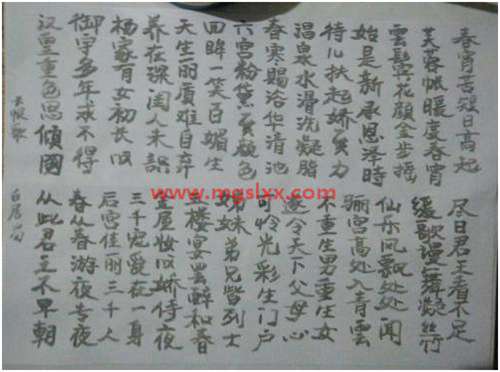 长恨歌
汉皇重色思傾國
御宇多年求不得
杨家有女初长成
养在深闺人未識
天生丽质难自弃
回眸一笑百媚生
六宫粉黛无颜色
春寒赐浴华清池
温泉水滑洗凝脂
侍儿扶起娇無力
始是新承恩泽時
雲鬓花颜金步摇
芙蓉帐暖度春宵
春宵苦短日高起
白居易
从此君王不早朝
春从春游夜专夜
后宫佳丽三千人
三千宠爱在一身
金屋妆成娇侍夜
玉楼宴罢醉和春
姊妹弟兄皆列士
可怜光彩生门户
遂令天下父母心
不重生男重生女
骊宫高处入青雲
仙乐风飘处处闻
缓歌慢舞凝丝竹
尽日君王看不足
www.mgslxx.com